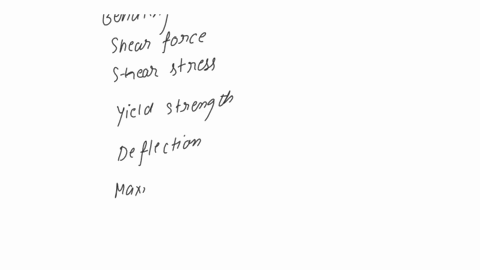 Shear force
Shear stress
Yield strength
Deflection
Max,